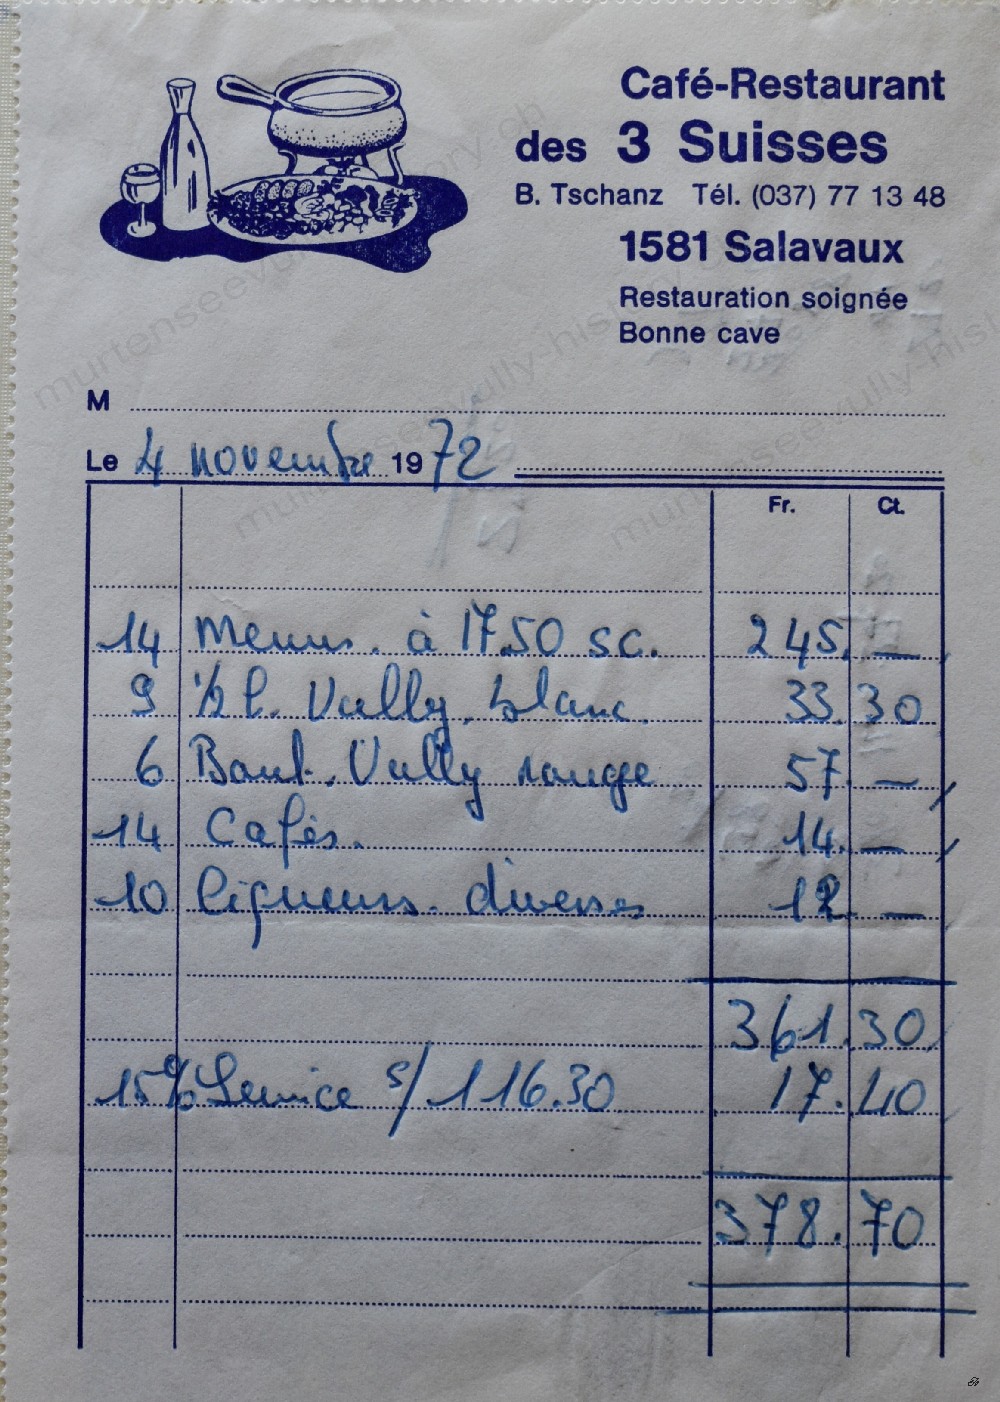 Café-Restaurant
des 3 Suisses
B. Tschanz Tél. (037) 77 13 48
1581 Salavaux
Restauration soignée
Bonne cave
M
Le 4 novembre 1972
Fr. Ct.
14 Menus. à 17.50 sc. 245. —
9 1/2 l. Vully. blanc. 33.30
6 Bout. Vully rouge 57. —
14 Cafés. 14. —
10 liqueurs. diverses 12. —
361.30
15% Service s/ 116.30 17.40
378.70